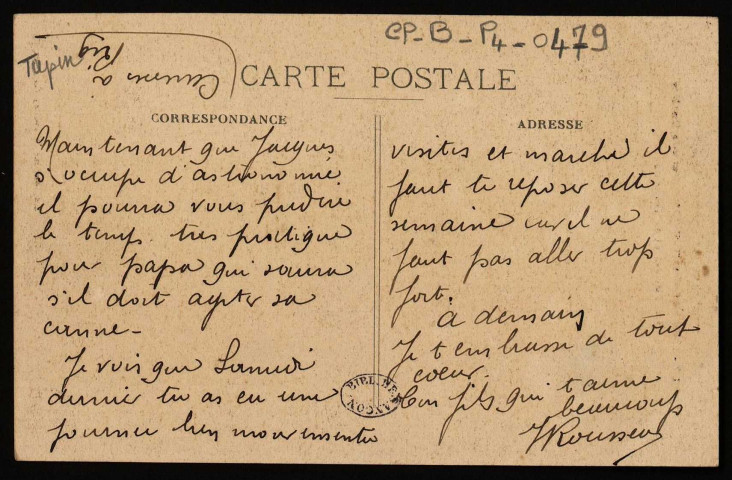 CP-B-P4-0479
Tapin
CARTE POSTALE
CORRESPONDANCE
Maintenant que Jacques
s'occupe d'astronomie
il pourra vous prédire
le temps. très pratique
pour papa qui saura
s'il doit ajeter sa
canne -
Je vois que Samedi
dernier tu as eu une
journée bien mouvementée
ADRESSE
visites et marche il
faut te reposer cette
semaine car il ne
faut pas aller trop
fort.
a demain
Je t'embrasse de tout
coeur.
Ton fils qui t'aime
beaucoup
Rousseau